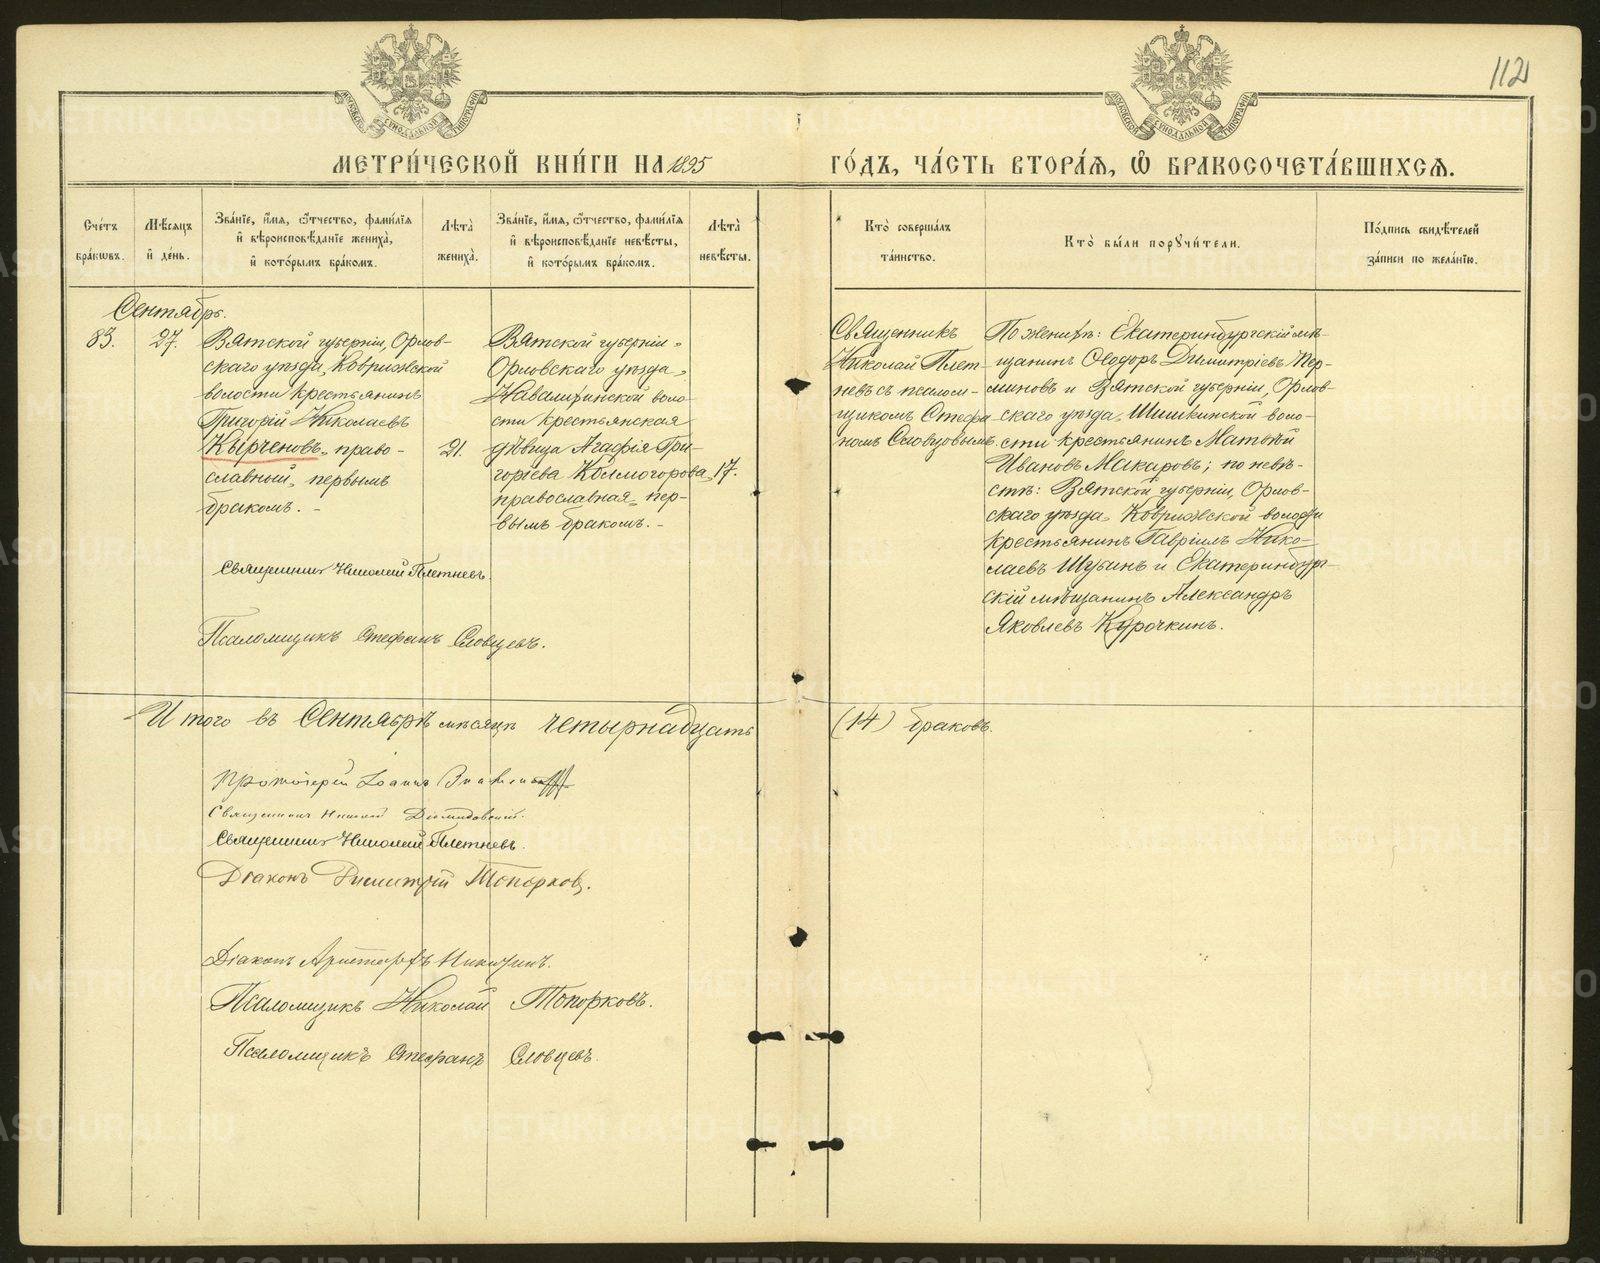 112
МОСКОВСКОЙ СѴНОДАЛЬНОЙ ТИПОГРАФІИ
МОСКОВСКОЙ СѴНОДАЛЬНОЙ ТИПОГРАФІИ
МЕТРИ́ЧЕСКОЙ КНИ́ГИ НА 1895 ГО́ДЪ, ЧА́СТЬ ВТОРА́Ѧ, Ѽ БРАКОСОЧЕТА́ВШИХСѦ.
Сче́тъ
бра́кѡвъ.
Мѣ́сяцъ
и҆ де́нь.
Зва́нїе, и҆́мѧ, ѻ҆́тчество, фамі́лїѧ
и҆ вѣроисповѣ́данїе жениха̀,
и҆ кото́рымъ бра́комъ.
Лѣ́та̀
жениха̀.
Зва́нїе, и҆́мѧ, ѻ҆́тчество, фамі́лїѧ
и҆ вѣроисповѣ́данїе невѣ́сты,
и҆ кото́рымъ бра́комъ.
Лѣ́та̀
невѣ́сты.
Кто̀ соверша́лъ
та́инство.
Кто̀ бы́ли порꙋчи́тели.
По́дпись свидѣ́телей
за́писи по жела́нїю.
Сентябрь.
83.
27.
Вятской губерніи, Орлов-
скаго уѣзда, Ковринской
волости крестьянинъ
Григорій Николаевъ
Кырченовъ, право-
славный, первымъ
бракомъ. -
21.
Вятской губерніи
Орловскаго уѣзда,
Навалихинской воло
сти крестьянская
дѣвица Агафія Гри-
горіева Колмогорова,
православная, пер-
вымъ бракомъ. -
17.
Священникъ Николай Плетневъ.
Псаломщикъ Стефанъ Словцевъ.
Священникъ
Николай Плет-
невъ съ псалом-
щикомъ Стефа
номъ Словцовымъ.
По женихѣ: Екатеринбургскій мѣ-
щанинъ Ѳеодоръ Димитріевъ Пер-
миновъ и Вятской губерніи, Орлов-
скаго уѣзда, Шишкинской воло-
сти крестьянинъ Матвѣй
Ивановъ Макаровъ; по невѣ-
стѣ: Вятской губерніи, Орлов-
скаго уѣзда, Ковринской волости
крестьянинъ Гавріилъ Нико-
лаевъ Шубинъ и Екатеринбург-
скій мѣщанинъ Александръ
Яковлевъ Курочкинъ.
Итого въ Сентябрѣ мѣсяцѣ четырнадцать (14) браковъ.
Протоіерей Іоаннъ
Священникъ
Священникъ Николай Плетневъ.
Діаконъ Димитрій Топорковъ.
Діаконъ Аристархъ Никитинъ.
Псаломщикъ Николай Топорковъ.
Псаломщикъ Стефанъ Словцевъ.
METRIKI.GASO-URAL.RU